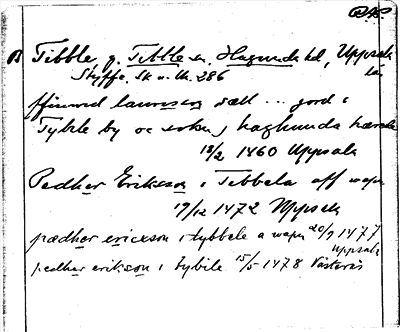 B Tibble, g. Tibble sn, Hagunda hd, Uppsala
län
Styffe, Sk u. Un. 286
ffinvid laurisson sælt ... jord i
Tybile by oc sokn, haghunda hærade
13/2 1460 Uppsala
Pedhar Erikson i Tebbela aff wapn
17/12 1472 Uppsala
pædhar ericxson i tybbele a wapn 20/9 1477
Uppsala
pedhar erikson i tybile 15/5 1478 Västerås